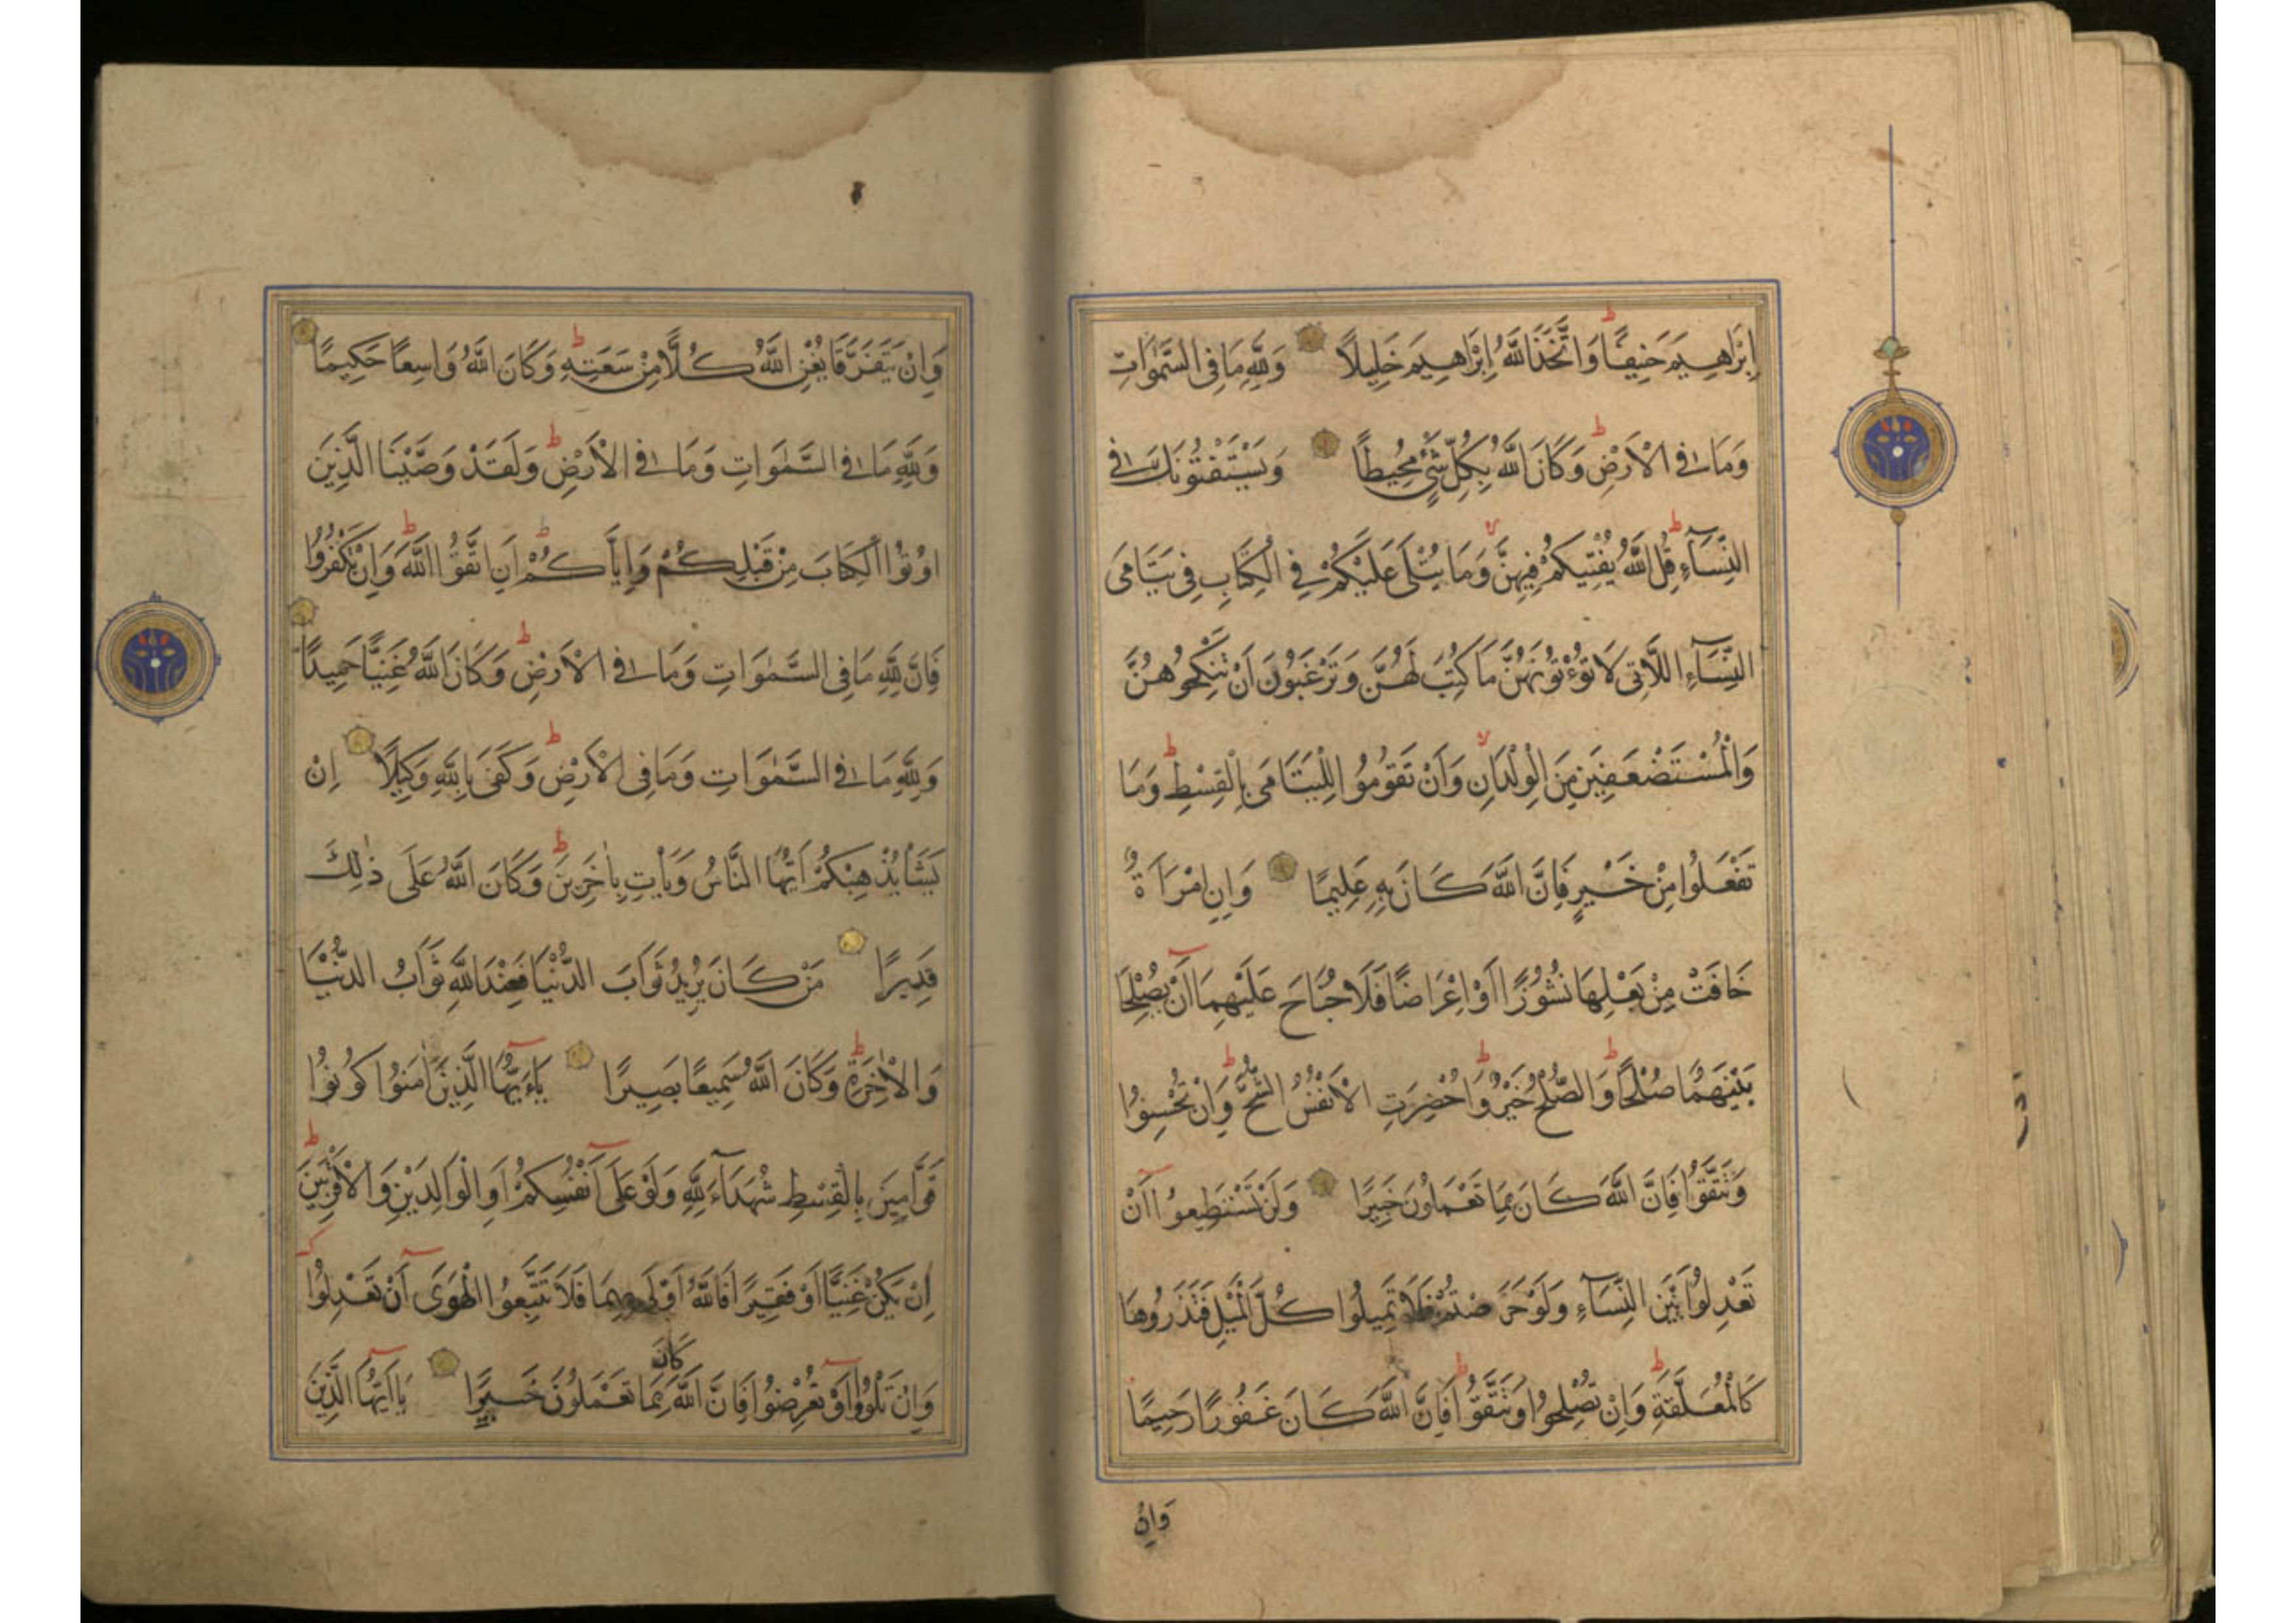 إِبْرَاهِيمَ حَنِيفًا وَاتَّخَذَ اللَّهُ إِبْرَاهِيمَ خَلِيلًا وَلِلَّهِ مَا فِي السَّمَٰوَاتِ
وَمَا فِي الْأَرْضِ وَكَانَ اللَّهُ بِكُلِّ شَيْءٍ مُحِيطًا وَيَسْتَفْتُونَكَ فِي
النِّسَآءِ قُلِ اللَّهُ يُفْتِيكُمْ فِيهِنَّ وَمَا يُتْلَى عَلَيْكُمْ فِي الْكِتَابِ فِي يَتَامَى
النِّسَآءِ اللَّاتِي لَا تُؤْتُونَهُنَّ مَا كُتِبَ لَهُنَّ وَتَرْغَبُونَ أَنْ تَنْكِحُوهُنَّ
وَالْمُسْتَضْعَفِينَ مِنَ الْوِلْدَانِ وَأَنْ تَقُومُوا لِلْيَتَامَى بِالْقِسْطِ وَمَا
تَفْعَلُوا مِنْ خَيْرٍ فَإِنَّ اللَّهَ كَانَ بِهِ عَلِيمًا وَإِنِ امْرَأَةٌ
خَافَتْ مِنْ بَعْلِهَا نُشُوزًا أَوْ إِعْرَاضًا فَلَا جُنَاحَ عَلَيْهِمَا أَنْ يُصْلِحَا
بَيْنَهُمَا صُلْحًا وَالصُّلْحُ خَيْرٌ وَأُحْضِرَتِ الْأَنْفُسُ الشُّحَّ وَإِنْ تُحْسِنُوا
وَتَتَّقُوا فَإِنَّ اللَّهَ كَانَ بِمَا تَعْمَلُونَ خَبِيرًا وَلَنْ تَسْتَطِيعُوا أَنْ
تَعْدِلُوا بَيْنَ النِّسَآءِ وَلَوْ حَرَصْتُمْ فَلَا تَمِيلُوا كُلَّ الْمَيْلِ فَتَذَرُوهَا
كَالْمُعَلَّقَةِ وَإِنْ تُصْلِحُوا وَتَتَّقُوا فَإِنَّ اللَّهَ كَانَ غَفُورًا رَحِيمًا
وَإِنْ
وَإِنْ يَتَفَرَّقَا يُغْنِ اللَّهُ كُلًّا مِنْ سَعَتِهِ وَكَانَ اللَّهُ وَاسِعًا حَكِيمًا
وَلِلَّهِ مَا فِي السَّمَٰوَاتِ وَمَا فِي الْأَرْضِ وَلَقَدْ وَصَّيْنَا الَّذِينَ
أُوتُوا الْكِتَابَ مِنْ قَبْلِكُمْ وَإِيَّاكُمْ أَنِ اتَّقُوا اللَّهَ وَإِنْ تَكْفُرُوا
فَإِنَّ لِلَّهِ مَا فِي السَّمَٰوَاتِ وَمَا فِي الْأَرْضِ وَكَانَ اللَّهُ غَنِيًّا حَمِيدًا
وَلِلَّهِ مَا فِي السَّمَٰوَاتِ وَمَا فِي الْأَرْضِ وَكَفَى بِاللَّهِ وَكِيلًا إِنْ
يَشَأْ يُذْهِبْكُمْ أَيُّهَا النَّاسُ وَيَأْتِ بِآخَرِينَ وَكَانَ اللَّهُ عَلَى ذَٰلِكَ
قَدِيرًا مَنْ كَانَ يُرِيدُ ثَوَابَ الدُّنْيَا فَعِنْدَ اللَّهِ ثَوَابُ الدُّنْيَا
وَالْآخِرَةِ وَكَانَ اللَّهُ سَمِيعًا بَصِيرًا يَاءَيُّهَا الَّذِينَ آمَنُوا كُونُوا
قَوَّامِينَ بِالْقِسْطِ شُهَدَآءَ لِلَّهِ وَلَوْ عَلَى أَنْفُسِكُمْ أَوِ الْوَالِدَيْنِ وَالْأَقْرَبِينَ
إِنْ يَكُنْ غَنِيًّا أَوْ فَقِيرًا فَاللَّهُ أَوْلَى بِهِمَا فَلَا تَتَّبِعُوا الْهَوَى أَنْ تَعْدِلُوا
وَإِنْ تَلْوُوا أَوْ تُعْرِضُوا فَإِنَّ اللَّهَ كَانَ بِمَا تَعْمَلُونَ خَبِيرًا يَا أَيُّهَا الَّذِينَ